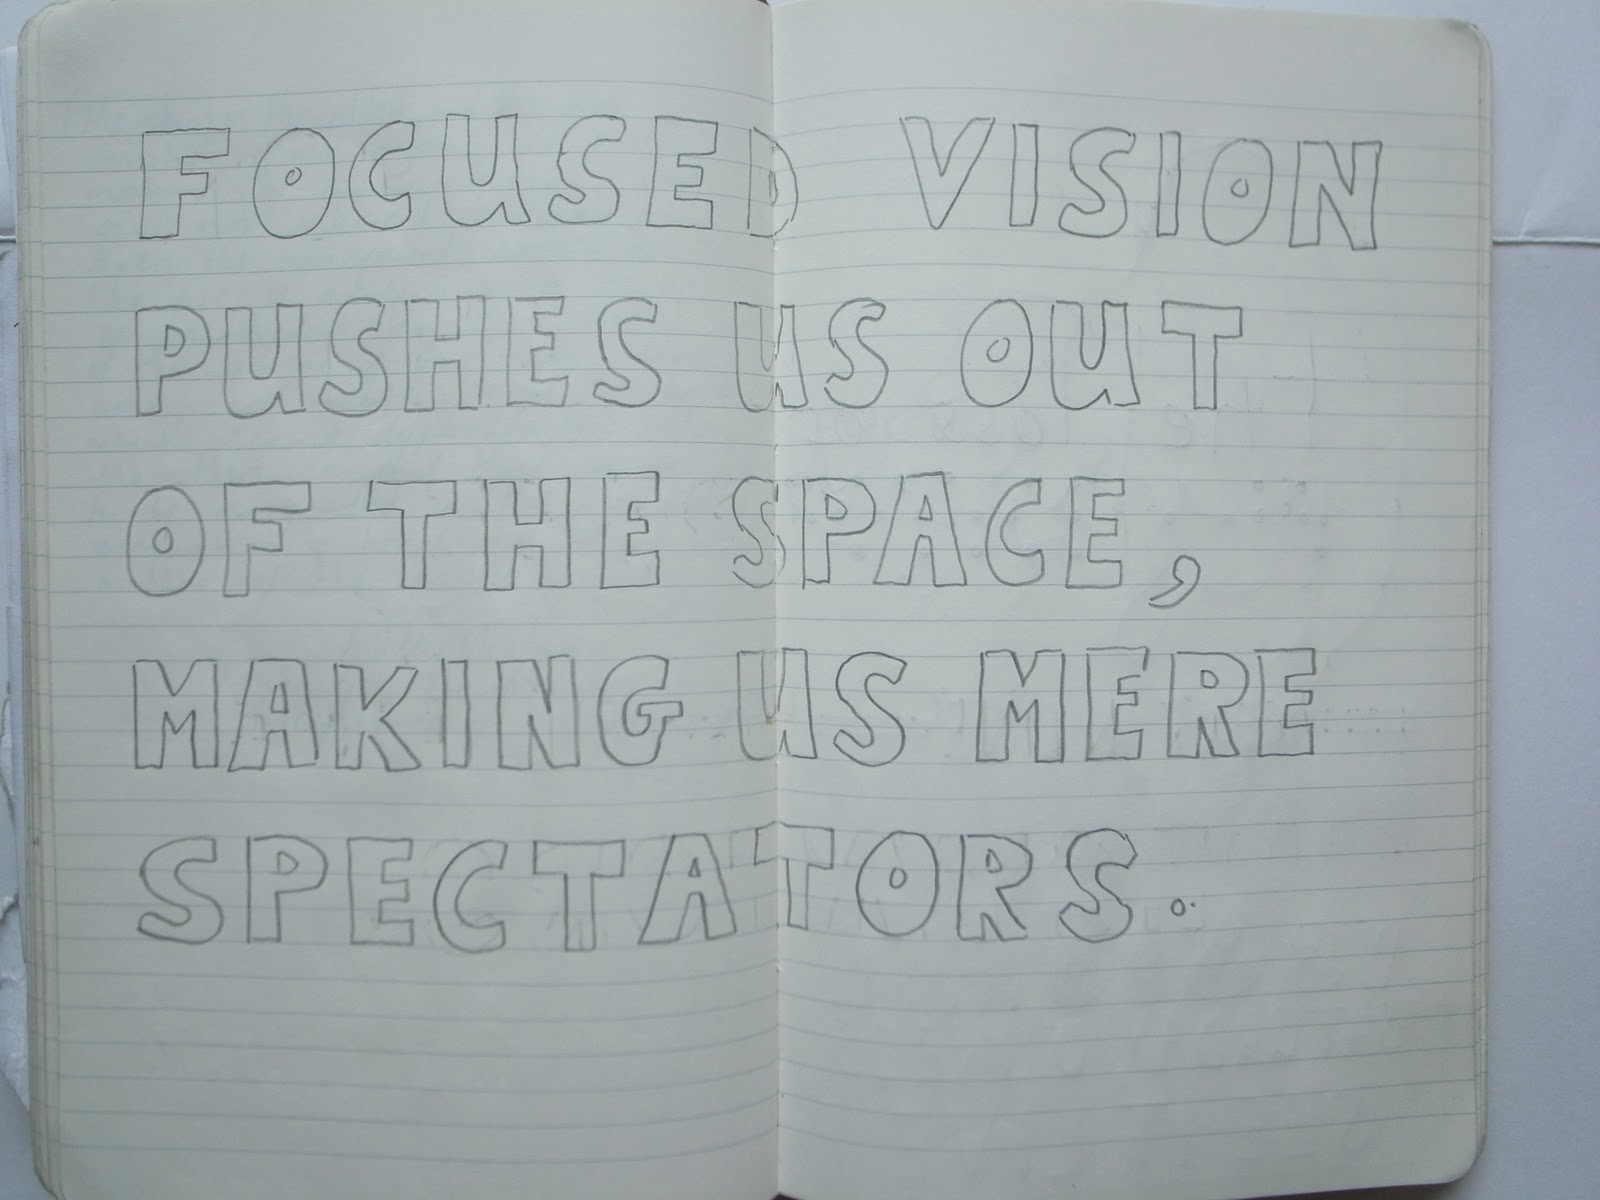 FOCUSED VISION
PUSHES US OUT
OF THE SPACE,
MAKING US MERE
SPECTATORS.